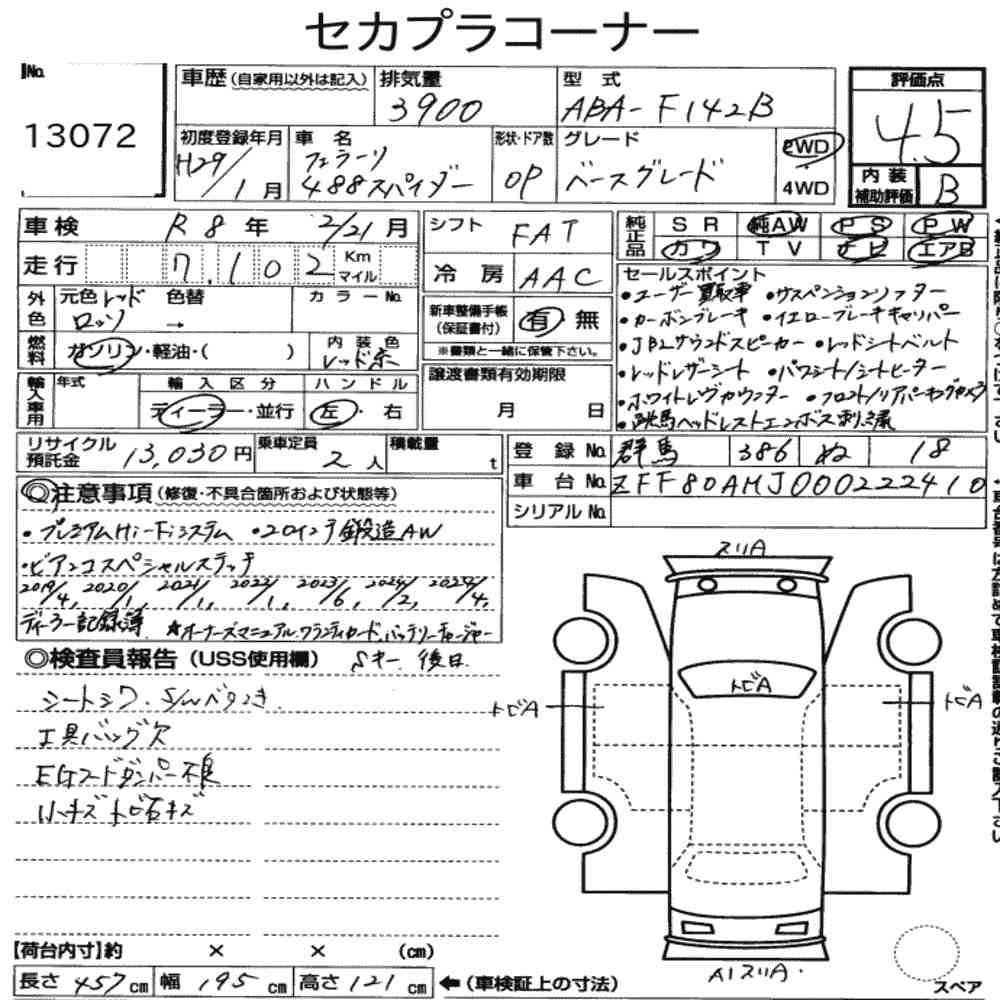 セカプラコーナー
No.
13072
車歴(自家用以外は記入) 排気量 3900 型式 ABA-F142B
初度登録年月 H29/1月 車名 フェラーリ 488スパイダー 形状・ドア数 OP グレード ベースグレード 2WD 4WD
評価点 4.5
内装補助評価 B
車検 R8年 2/21月
走行 7,102 Km マイル
外色 元色 レッド ロッソ 色替 → カラーNo.
燃料 ガソリン・軽油・( ) 内装色 レッド系
輸入車用 年式 輸入区分 ディーラー・並行 ハンドル 左・右
シフト FAT
冷房 AAC
新車整備手帳(保証書付) 有 無
※書類と一緒に保管下さい。
譲渡書類有効期限
月 日
純正品 SR 純AW PS PW
カワ TV ナビ エアB
セールスポイント
・ユーザー買取車 ・サスペンションリフター
・カーボンブレーキ ・イエローブレーキキャリパー
・JBLサウンドスピーカー ・レッドシートベルト
・レッドレザーシート ・パワーシート/シートヒーター
・ホワイトレヴカウンター ・フロント/リアパーキングカメラ
・跳馬ヘッドレストエンボス刺繍
リサイクル預託金 13,030円 乗車定員 2人 積載量 t
登録No. 群馬 386 ぬ 18
車台No. ZFF80AMJ000222410
シリアルNo.
◎注意事項(修復・不具合箇所および状態等)
・プレミアムHi-Fiシステム ・20インチ鍛造AW
・ビアンコスペシャルステッチ
2019/4, 2020/1, 2021/1, 2022/1, 2023/6, 2024/2, 2024/4,
ディーラー記録簿 ★オーナーズマニュアル.ワランティカード.バッテリーチャージャー
Sキー 後日
◎検査員報告(USS使用欄)
シートシワ. S/Wベタつき.
工具バッグ欠
EGフードダンパー不良
小キズ トビ石キズ
スリA
トビA
トビA
トビA
A1スリA.
スペア
【荷台内寸】約 × × (cm)
長さ 457cm 幅 195cm 高さ 121cm ←(車検証上の寸法)